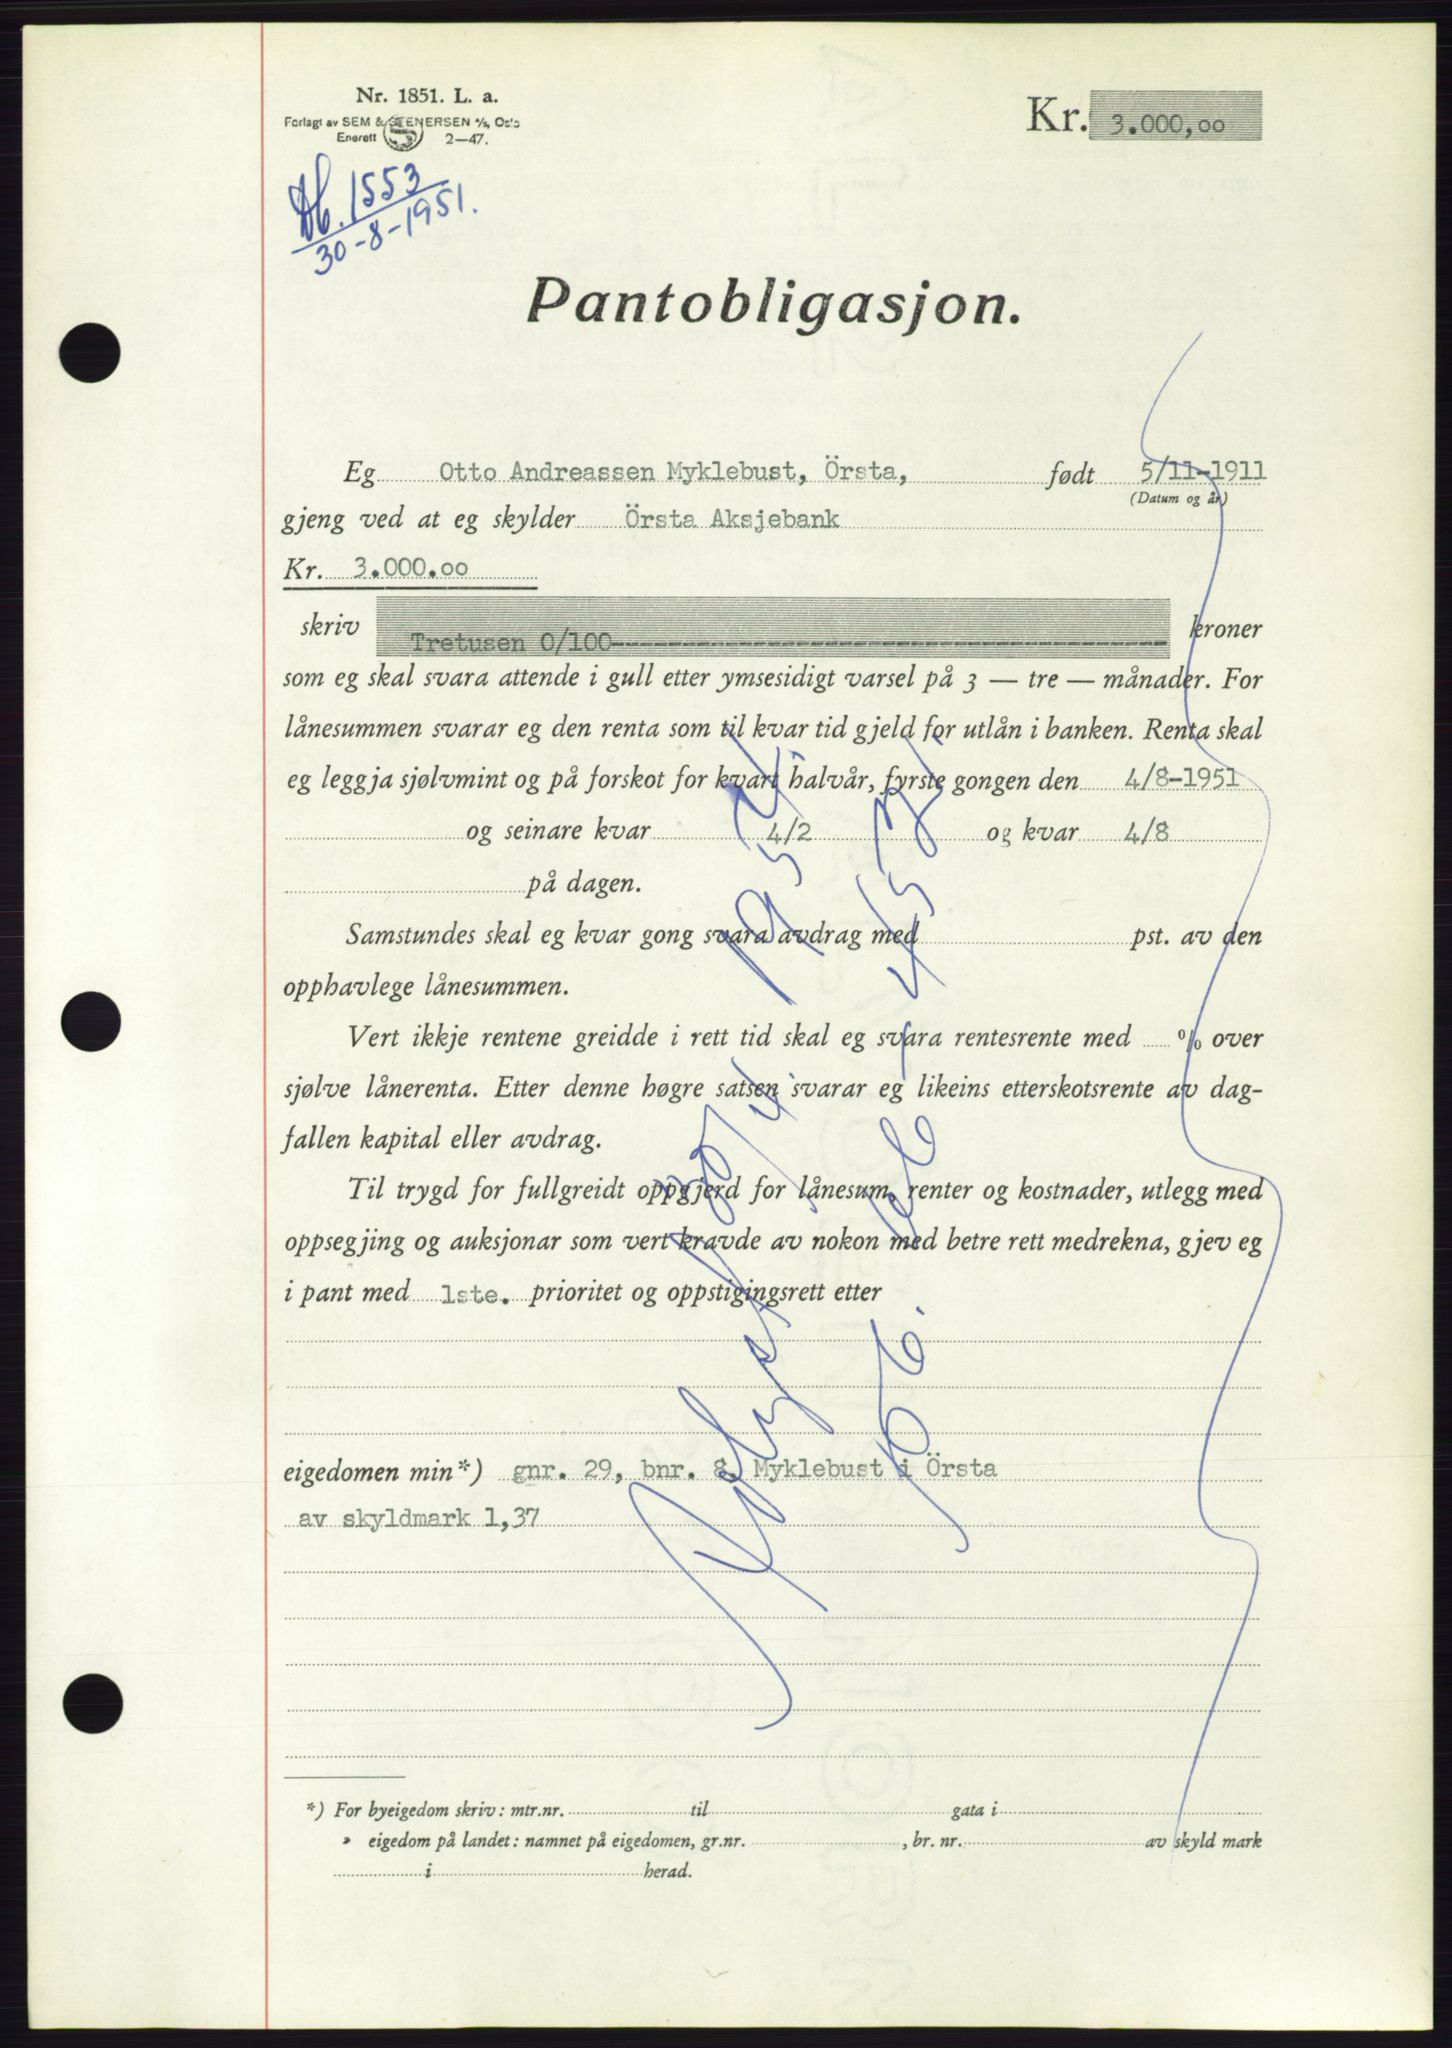 Nr. 1851. L. a.
Forlagt av SEM & STENERSEN A/S, Oslo
Enerett 2—47.
Kr. 3.000,oo
Db. 1553
30-8-1951.
Pantobligasjon.
Eg Otto Andreassen Myklebust, Örsta, født 5/11-1911
(Datum og år)
gjeng ved at eg skylder Örsta Aksjebank
Kr. 3.000.oo
skriv Tretusen 0/100 kroner
som eg skal svara attende i gull etter ymsesidigt varsel på 3 — tre — månader. For
lånesummen svarar eg den renta som til kvar tid gjeld for utlån i banken. Renta skal
eg leggja sjølvmint og på forskot for kvart halvår, fyrste gongen den 4/8-1951
og seinare kvar 4/2 og kvar 4/8
på dagen.
Samstundes skal eg kvar gong svara avdrag med pst. av den
opphavlege lånesummen.
Vert ikkje rentene greidde i rett tid skal eg svara rentesrente med % over
sjølve lånerenta. Etter denne høgre satsen svarar eg likeins etterskotsrente av dag-
fallen kapital eller avdrag.
Til trygd for fullgreidt oppgjerd for lånesum, renter og kostnader, utlegg med
oppsegjing og auksjonar som vert kravde av nokon med betre rett medrekna, gjev eg
i pant med 1ste. prioritet og oppstigingsrett etter
eigedomen min*) gnr. 29, bnr. 8, Myklebust i Örsta
av skyldmark 1,37
*) For byeigedom skriv: mtr.nr. til gata i
» eigedom på landet: namnet på eigedomen, gr.nr. , br. nr. av skyld mark
i herad.